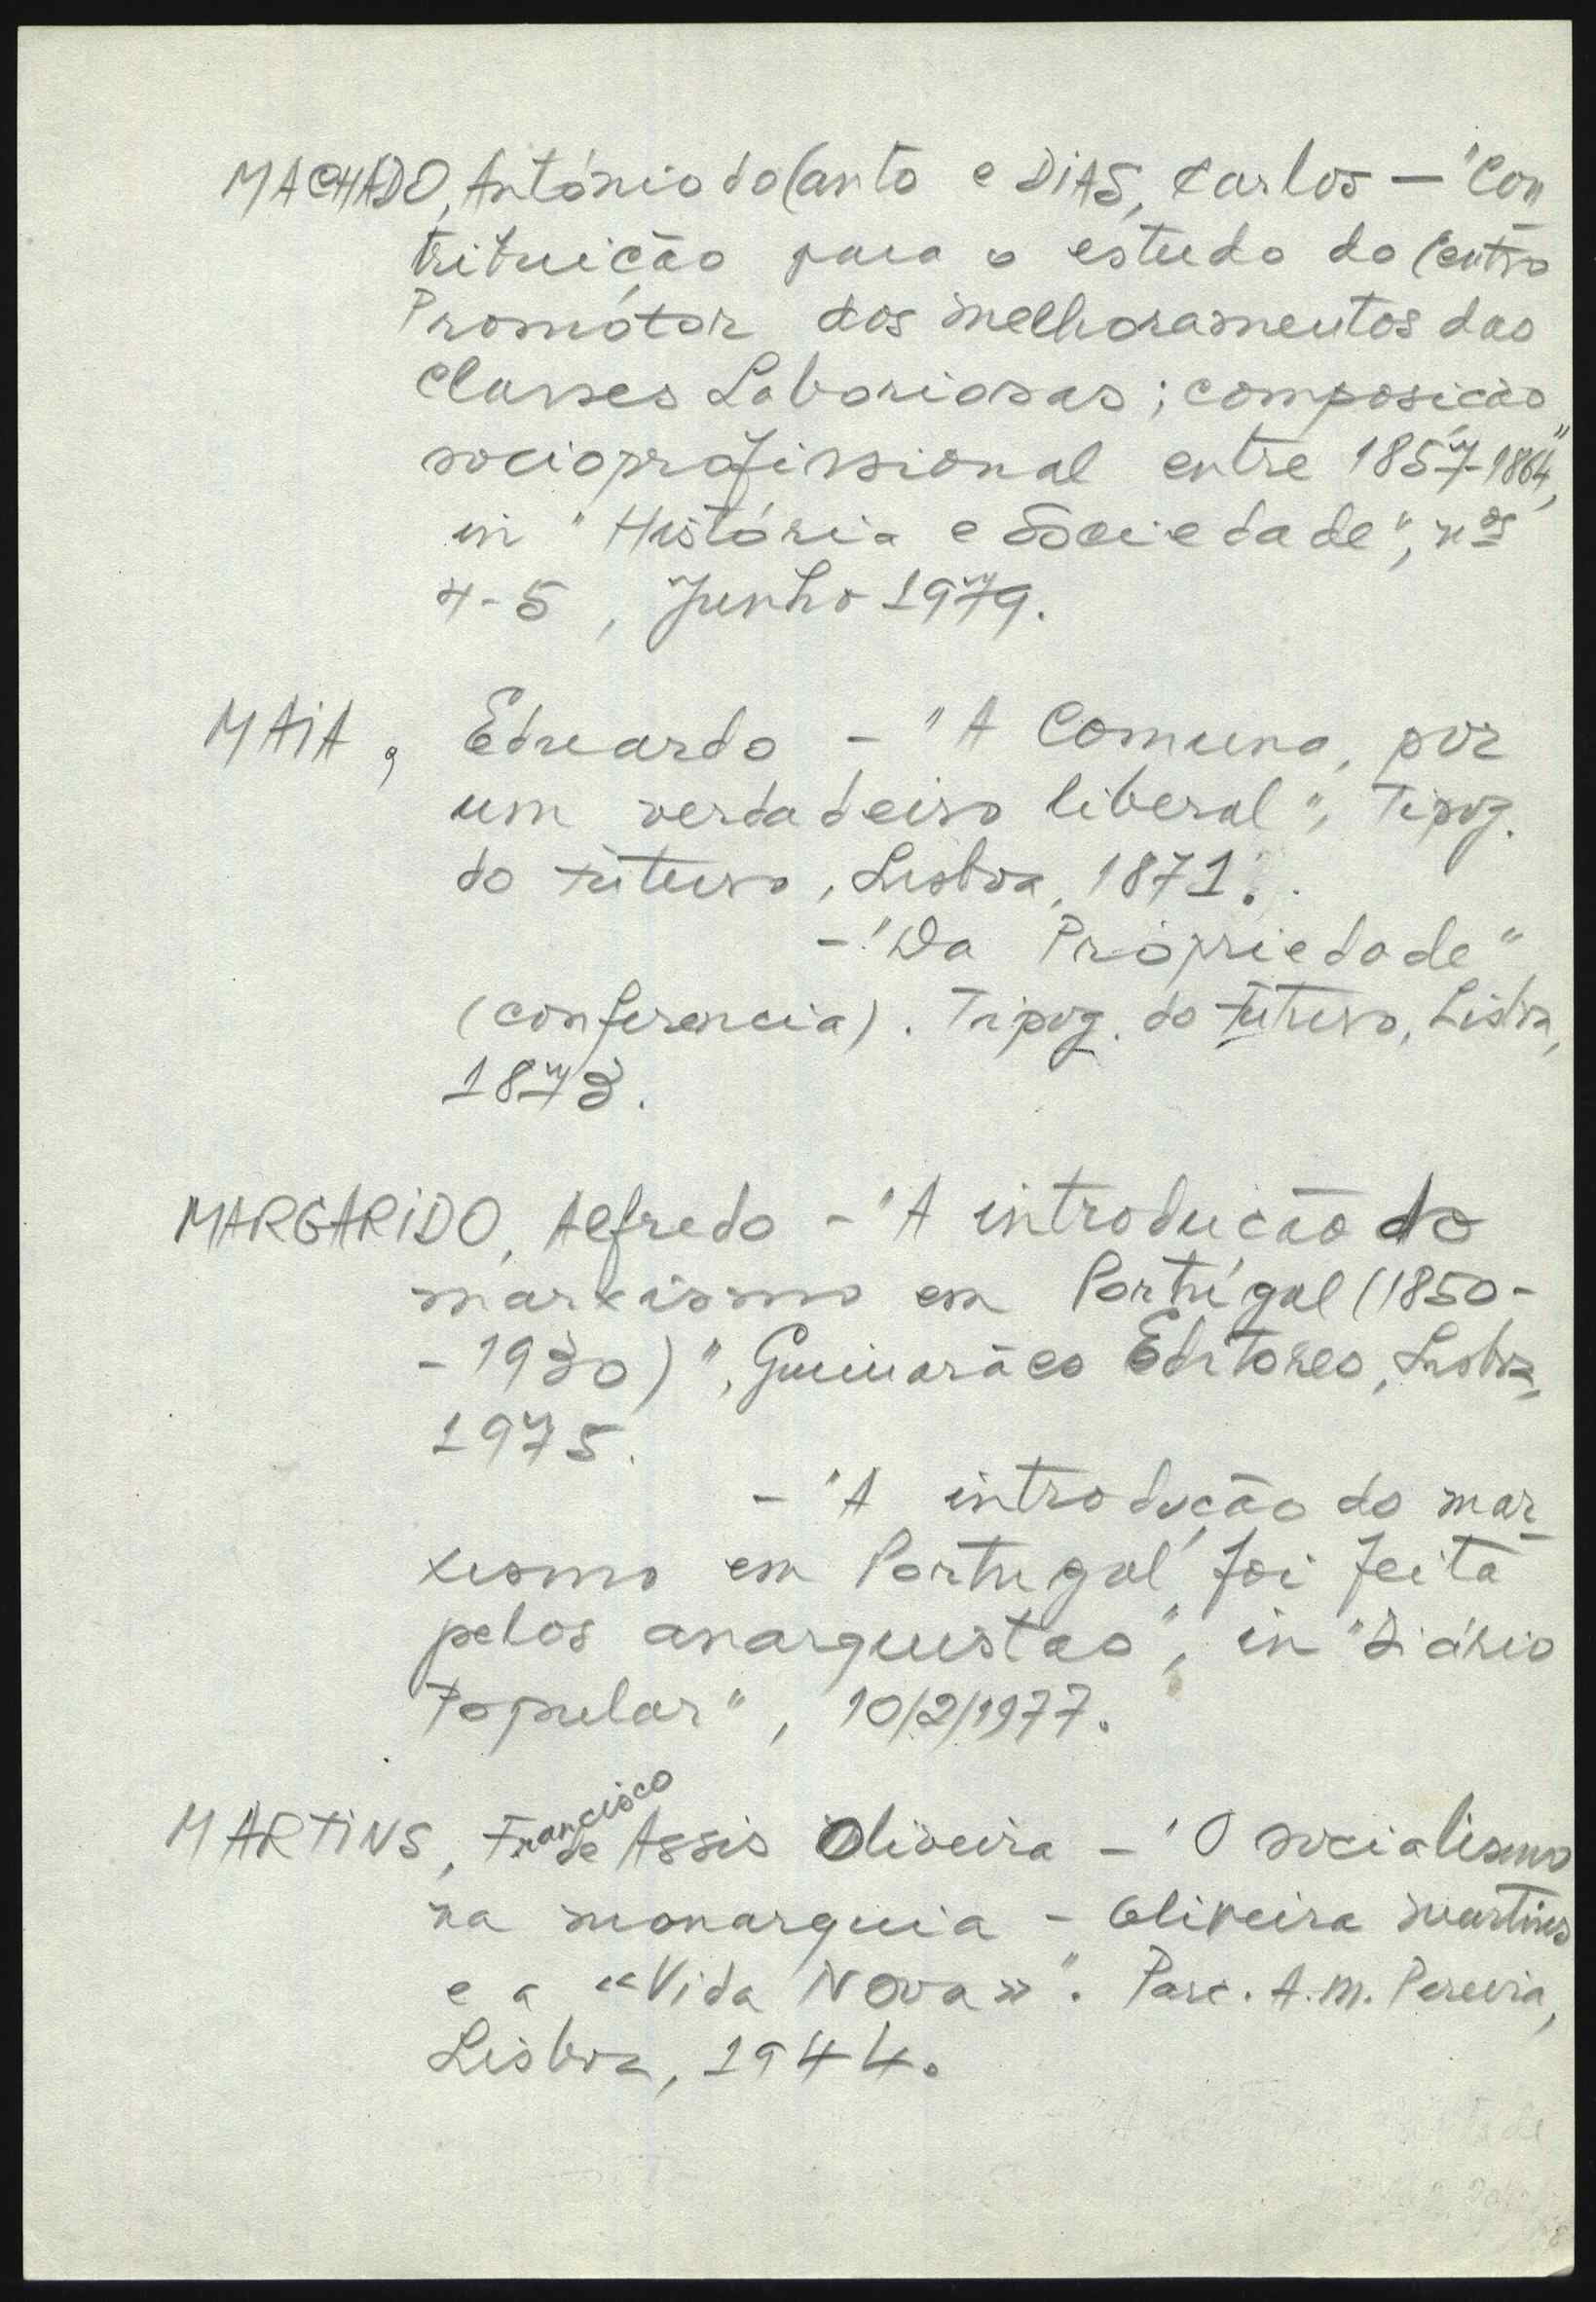 MACHADO, António do Canto e DIAS, Carlos — "Con
tribuição para o estudo do Centro
Promótor dos melhoramentos das
Classes Laboriosas; composição
socioprofissional entre 1857-1864",
in "História e Sociedade", nos
4-5, Junho 1979.
MAIA, Eduardo - "A Comuna, por
um verdadeiro liberal", Tipog.
do Futuro, Lisboa, 1871.
- "Da Propriedade"
(conferencia). Tipog. do Futuro, Lisboa,
1873.
MARGARIDO, Alfredo - "A introdução do
marxismo em Portugal (1850-
- 1930)", Guimarães Editores, Lisboa,
1975.
- "A introdução do mar
xismo em Portugal foi feita
pelos anarquistas", in "Diário
Popular", 10/2/1977.
MARTINS, Francisco de Assis Oliveira - "O socialismo
na monarquia - Oliveira Martins
e a «Vida Nova»". Parc. A. M. Pereira,
Lisboa, 1944.